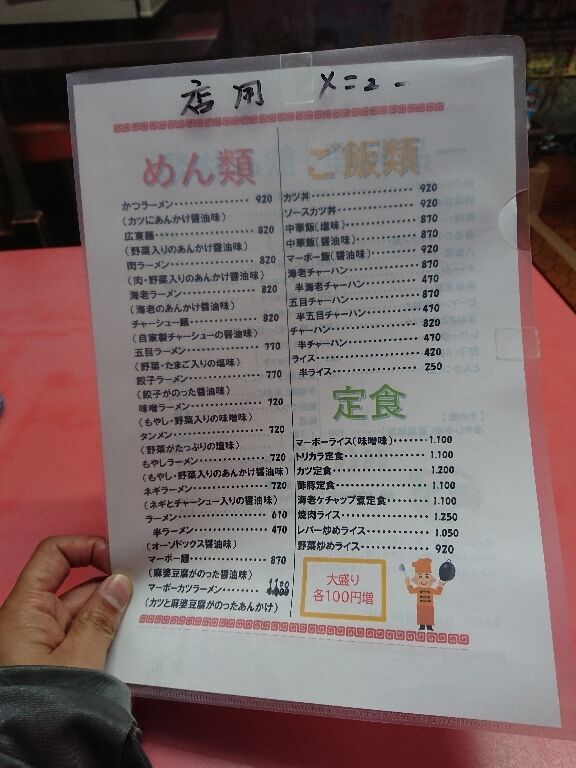 店用 メニュー
めん類
かつラーメン 920
(カツにあんかけ醤油味)
広東麺 820
(野菜入りのあんかけ醤油味)
肉ラーメン 820
(肉・野菜入りのあんかけ醤油味)
海老ラーメン 820
(海老のあんかけ醤油味)
チャーシュー麺 820
(自家製チャーシューの醤油味)
五目ラーメン 770
(野菜・たまご入りの塩味)
餃子ラーメン 770
(餃子がのった醤油味)
味噌ラーメン 720
(もやし・野菜入りの味噌味)
タンメン 720
(野菜がたっぷりの塩味)
もやしラーメン 720
(もやし・野菜入りのあんかけ醤油味)
ネギラーメン 720
(ネギとチャーシュー入りの醤油味)
ラーメン 610
半ラーメン 470
(オーソドックス醤油味)
マーボー麺 870
(麻婆豆腐がのった醤油味)
マーボーカツラーメン 1100
(カツと麻婆豆腐がのったあんかけ)
ご飯類
カツ丼 920
ソースカツ丼 920
中華飯(塩味) 870
中華飯(醤油味) 870
マーボー飯(醤油味) 920
海老チャーハン 870
半海老チャーハン 470
五目チャーハン 870
半五目チャーハン 470
チャーハン 820
半チャーハン 470
ライス 420
半ライス 250
定食
マーボーライス(味噌味) 1.100
トリカラ定食 1.100
カツ定食 1.200
酢豚定食 1.100
海老ケチャップ煮定食 1.100
焼肉ライス 1.250
レバー炒めライス 1.050
野菜炒めライス 920
大盛り
各100円増